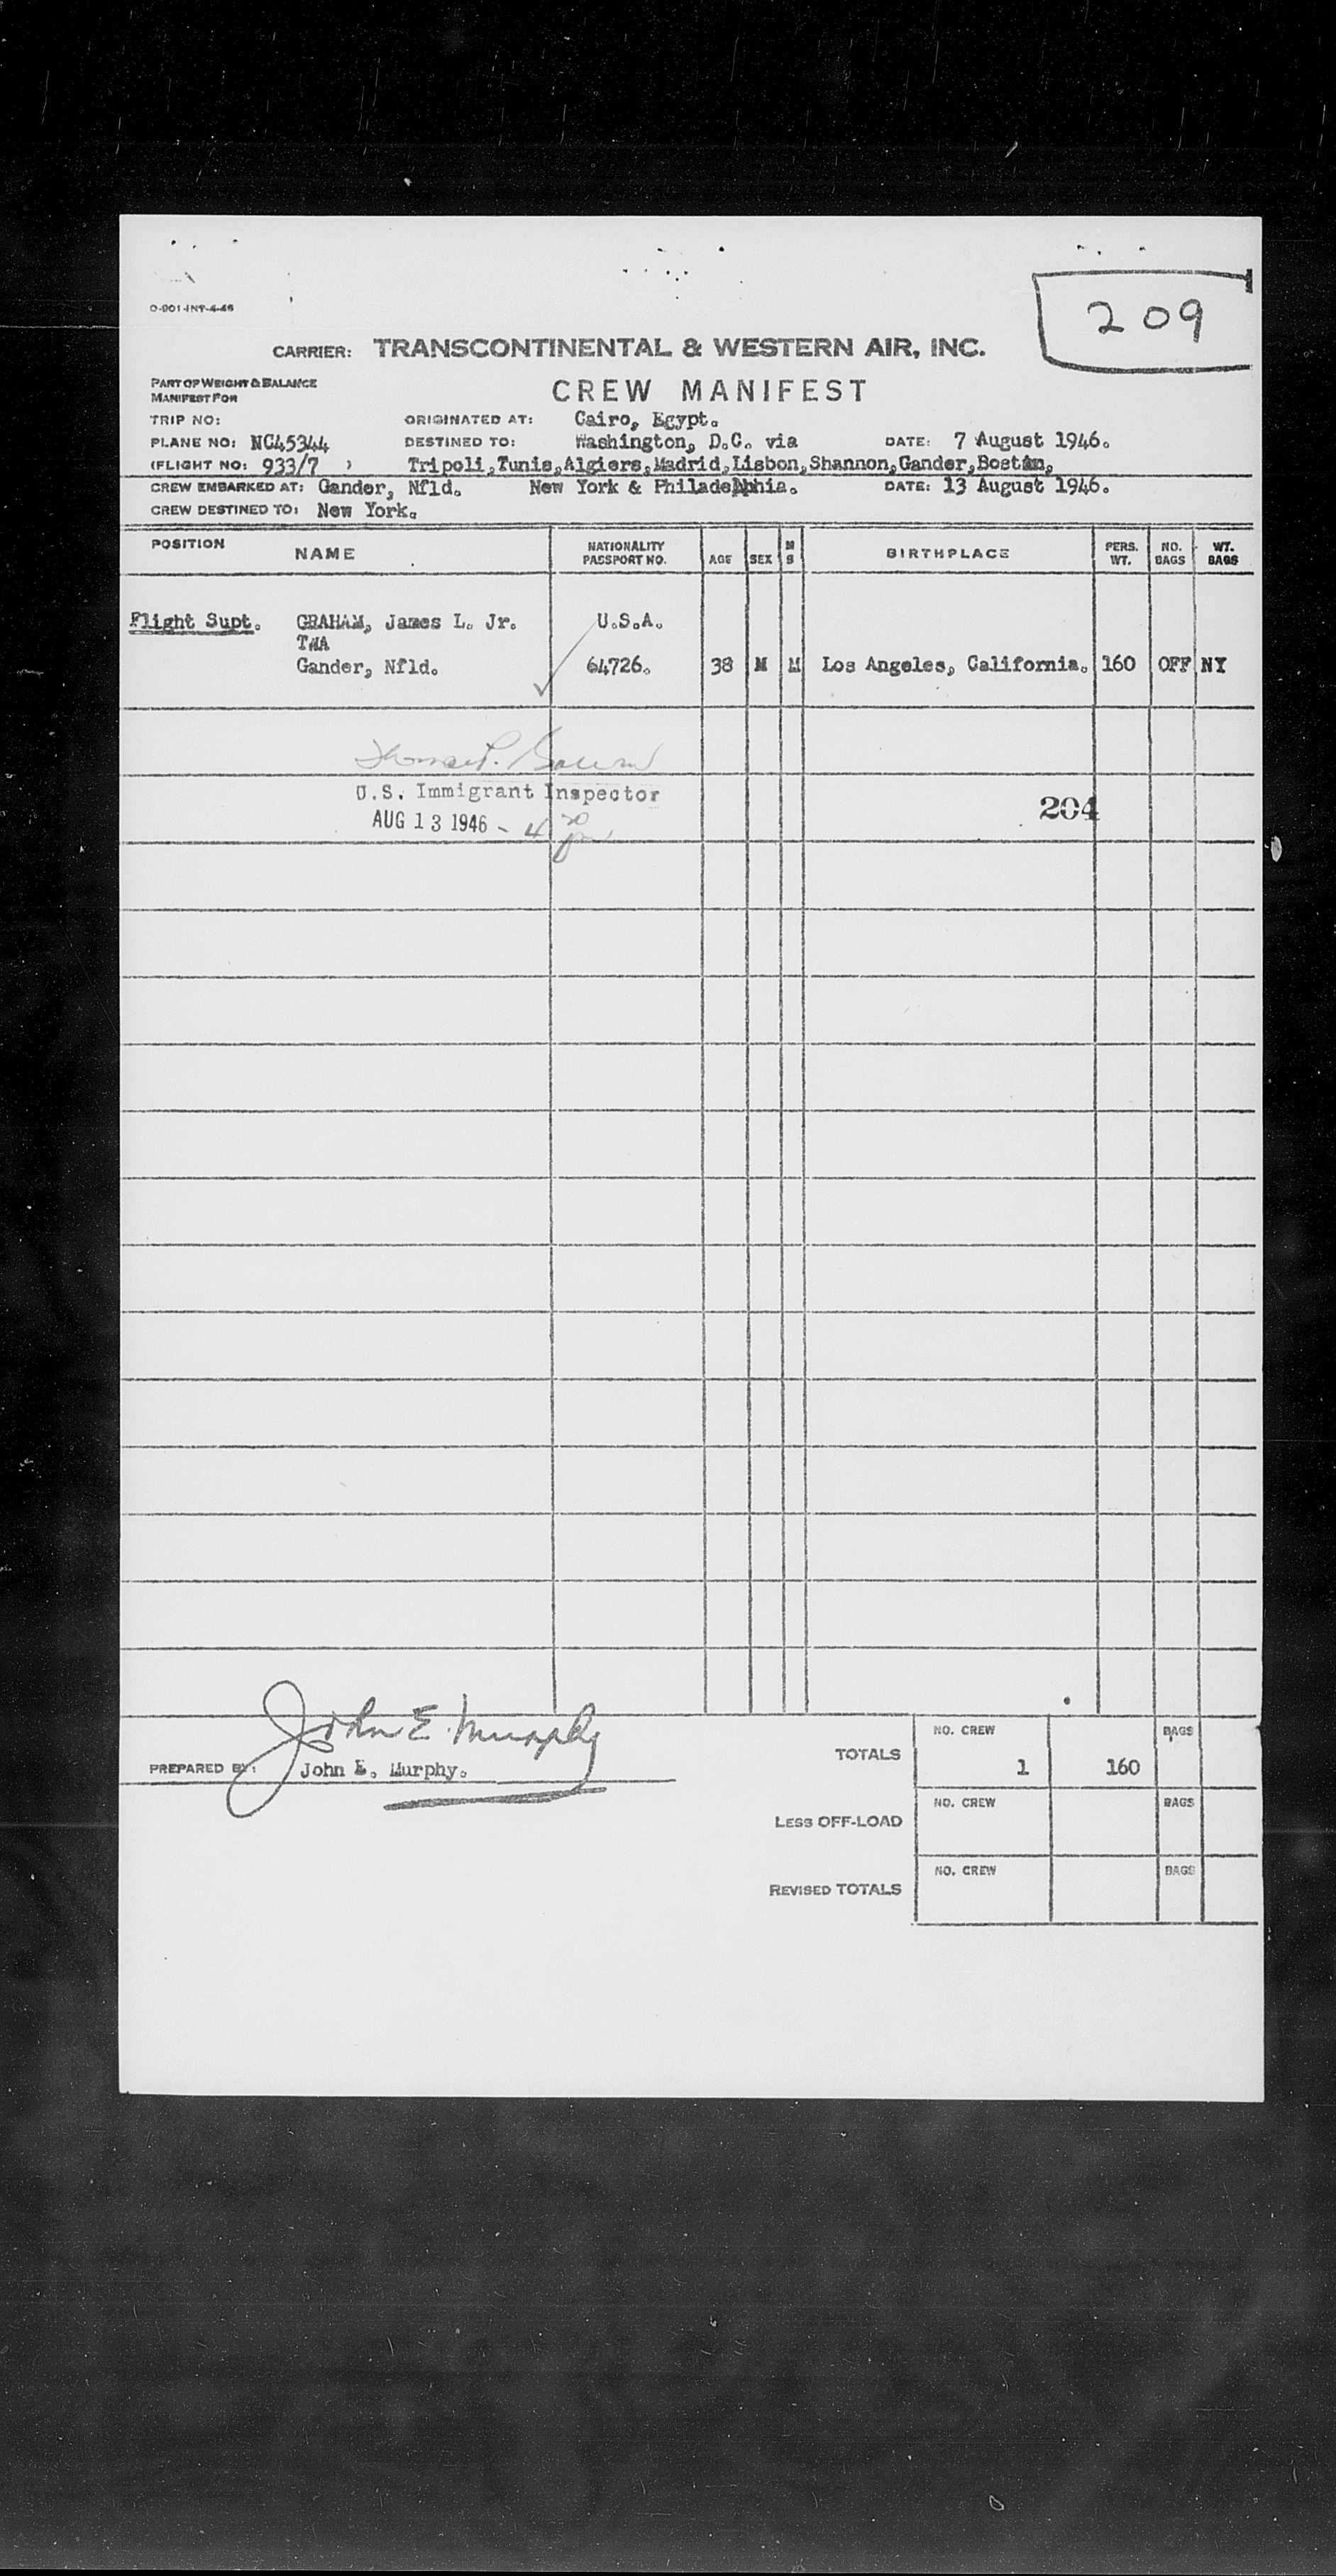 O-901-INT-4-46
209
CARRIER: TRANSCONTINENTAL & WESTERN AIR, INC.
PART OF WEIGHT & BALANCE
MANIFEST FOR
CREW MANIFEST
TRIP NO: ORIGINATED AT: Cairo, Egypt.
PLANE NO: NC45344 DESTINED TO: Washington, D.C. via DATE: 7 August 1946.
(FLIGHT NO: 933/7 ) Tripoli,Tunis,Algiers,Madrid,Lisbon,Shannon,Gander,Boston,
CREW EMBARKED AT: Gander, Nfld. New York & Philadelphia. DATE: 13 August 1946.
CREW DESTINED TO: New York.
POSITION NAME NATIONALITY PASSPORT NO. AGE SEX M S BIRTHPLACE PERS. WT. NO. BAGS WT. BAGS
Flight Supt. GRAHAM, James L. Jr. U.S.A.
TWA
Gander, Nfld. 64726. 38 M M Los Angeles, California. 160 OFF NY
U.S. Immigrant Inspector
AUG 13 1946 - 4 30 pm
204
John E. Murphy
PREPARED BY: John E. Murphy.
TOTALS NO. CREW 1 160 BAGS
LESS OFF-LOAD NO. CREW BAGS
REVISED TOTALS NO. CREW BAGS